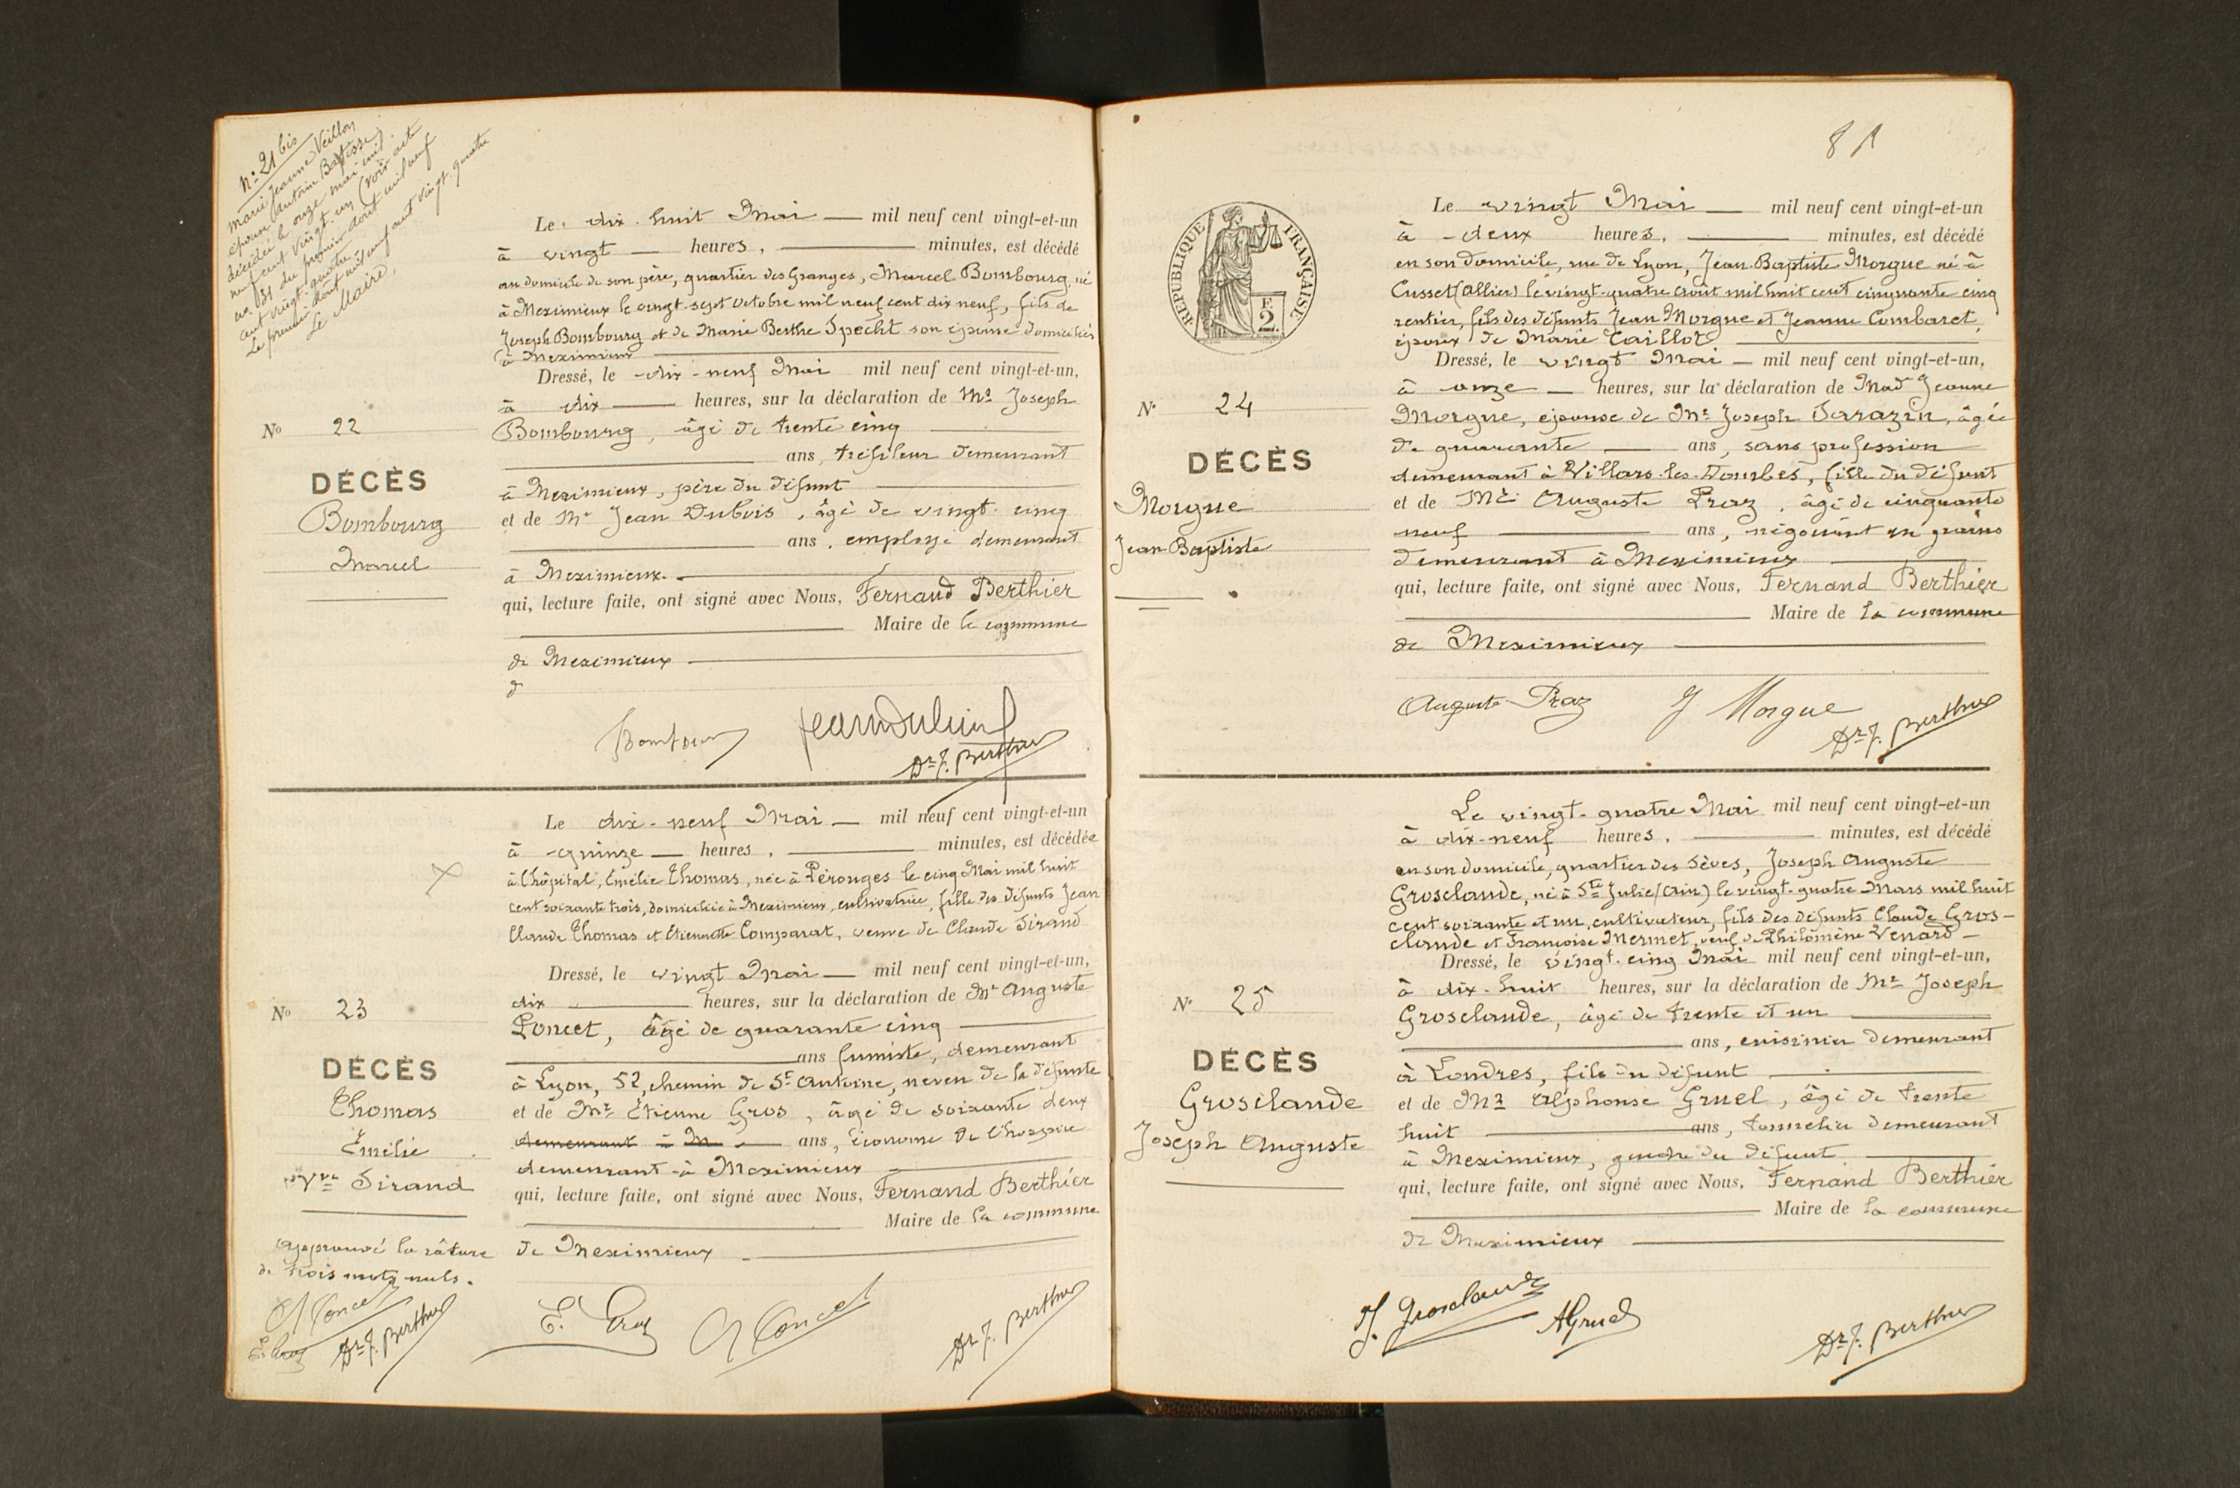 No. 21 bis
Marie Jeanne Veillon
épouse Antoine Baptisse,
décédée le onze mai mil
neuf cent vingt-un (voir acte
no. 131 du premier août mil neuf
cent vingt-quatre.
Le premier août mil neuf cent vingt-quatre
Le Maire,
Le dix-huit Mai mil neuf cent vingt-et-un
à vingt heures, minutes, est décédé
au domicile de son père, quartier des Granges, Marcel Bombourg né
à Meximieux le vingt-sept octobre mil neuf cent dix neuf, fils de
Joseph Bombourg et de Marie Berthe Specht son épouse domiciliés
à Meximieux
Dressé, le dix-neuf Mai mil neuf cent vingt-et-un,
à dix heures, sur la déclaration de Mr Joseph
Bombourg, âgé de trente cinq
ans, tréfileur demeurant
à Meximieux, père du défunt
et de Mr Jean Dubois, âgé de vingt-cinq
ans, employé demeurant
à Meximieux.
qui, lecture faite, ont signé avec Nous, Fernand Berthier
Maire de la commune
de Meximieux
d
No 22
DÉCÈS
Bombourg
Marcel
Bombourg Jean Dubois
Dr F. Berthier
Le dix-neuf Mai mil neuf cent vingt-et-un
à quinze heures, minutes, est décédée
à l'hôpital, Emélie Thomas, née à Pérouges le cinq Mai mil huit
cent soixante trois, domiciliée à Meximieux, cultivatrice, fille des défunts Jean
Claude Thomas et Etiennette Comparat, veuve de Claude Sirand
Dressé, le vingt Mai mil neuf cent vingt-et-un,
dix heures, sur la déclaration de Mr Auguste
Poncet, âgé de quarante cinq
ans fumiste, demeurant
à Lyon, 52, chemin de St Antoine, neveu de la défunte
et de Mr Etienne Gros, âgé de soixante deux
demeurant à M ans, économe de l'hospice
demeurant à Meximieux
qui, lecture faite, ont signé avec Nous, Fernand Berthier
Maire de la commune
de Meximieux
No 23
DÉCÈS
Thomas
Emélie
Vve Sirand
Approuvé la râture
de trois mots nuls.
A Poncet
E. Gros Dr F. Berthier
E. Gros A Poncet Dr F. Berthier
81
RÉPUBLIQUE FRANÇAISE
F.
2.
Le vingt Mai mil neuf cent vingt-et-un
à deux heures, minutes, est décédé
en son domicile, rue de Lyon, Jean-Baptiste Morgue né à
Cusset (Allier) le vingt-quatre août mil huit cent cinquante cinq
rentier, fils des défunts Jean Morgue et Jeanne Combaret,
époux de Marie Taillot
Dressé, le vingt Mai mil neuf cent vingt-et-un,
à onze heures, sur la déclaration de Made Jeanne
Morgue, épouse de Mr Joseph Sarazin, âgée
de quarante ans, sans profession
demeurant à Villars-les-Dombes, fille du défunt
et de Mr Auguste Praz, âgé de cinquante
neuf ans, négociant en grains
demeurant à Meximieux
qui, lecture faite, ont signé avec Nous, Fernand Berthier
Maire de la commune
de Meximieux
No 24
DÉCÈS
Morgue
Jean Baptiste
Auguste Praz J Morgue
Dr F. Berthier
Le vingt-quatre Mai mil neuf cent vingt-et-un
à dix-neuf heures, minutes, est décédé
en son domicile, quartier des Sèves, Joseph Auguste
Grosclaude, né à Ste Julie (Ain) le vingt-quatre Mars mil huit
cent soixante et un, cultivateur, fils des défunts Claude Gros-
claude et Françoise Mermet, veuf de Philomène Venard
Dressé, le vingt-cinq Mai mil neuf cent vingt-et-un,
à dix-huit heures, sur la déclaration de Mr Joseph
Grosclaude, âgé de trente et un
ans, cuisinier demeurant
à Londres, fils du défunt
et de Mr Alphonse Gruel, âgé de trente
huit ans, tonnelier demeurant
à Meximieux, gendre du défunt
qui, lecture faite, ont signé avec Nous, Fernand Berthier
Maire de la commune
de Meximieux
No 25
DÉCÈS
Grosclaude
Joseph Auguste
J. Grosclaude AGruel
Dr F. Berthier